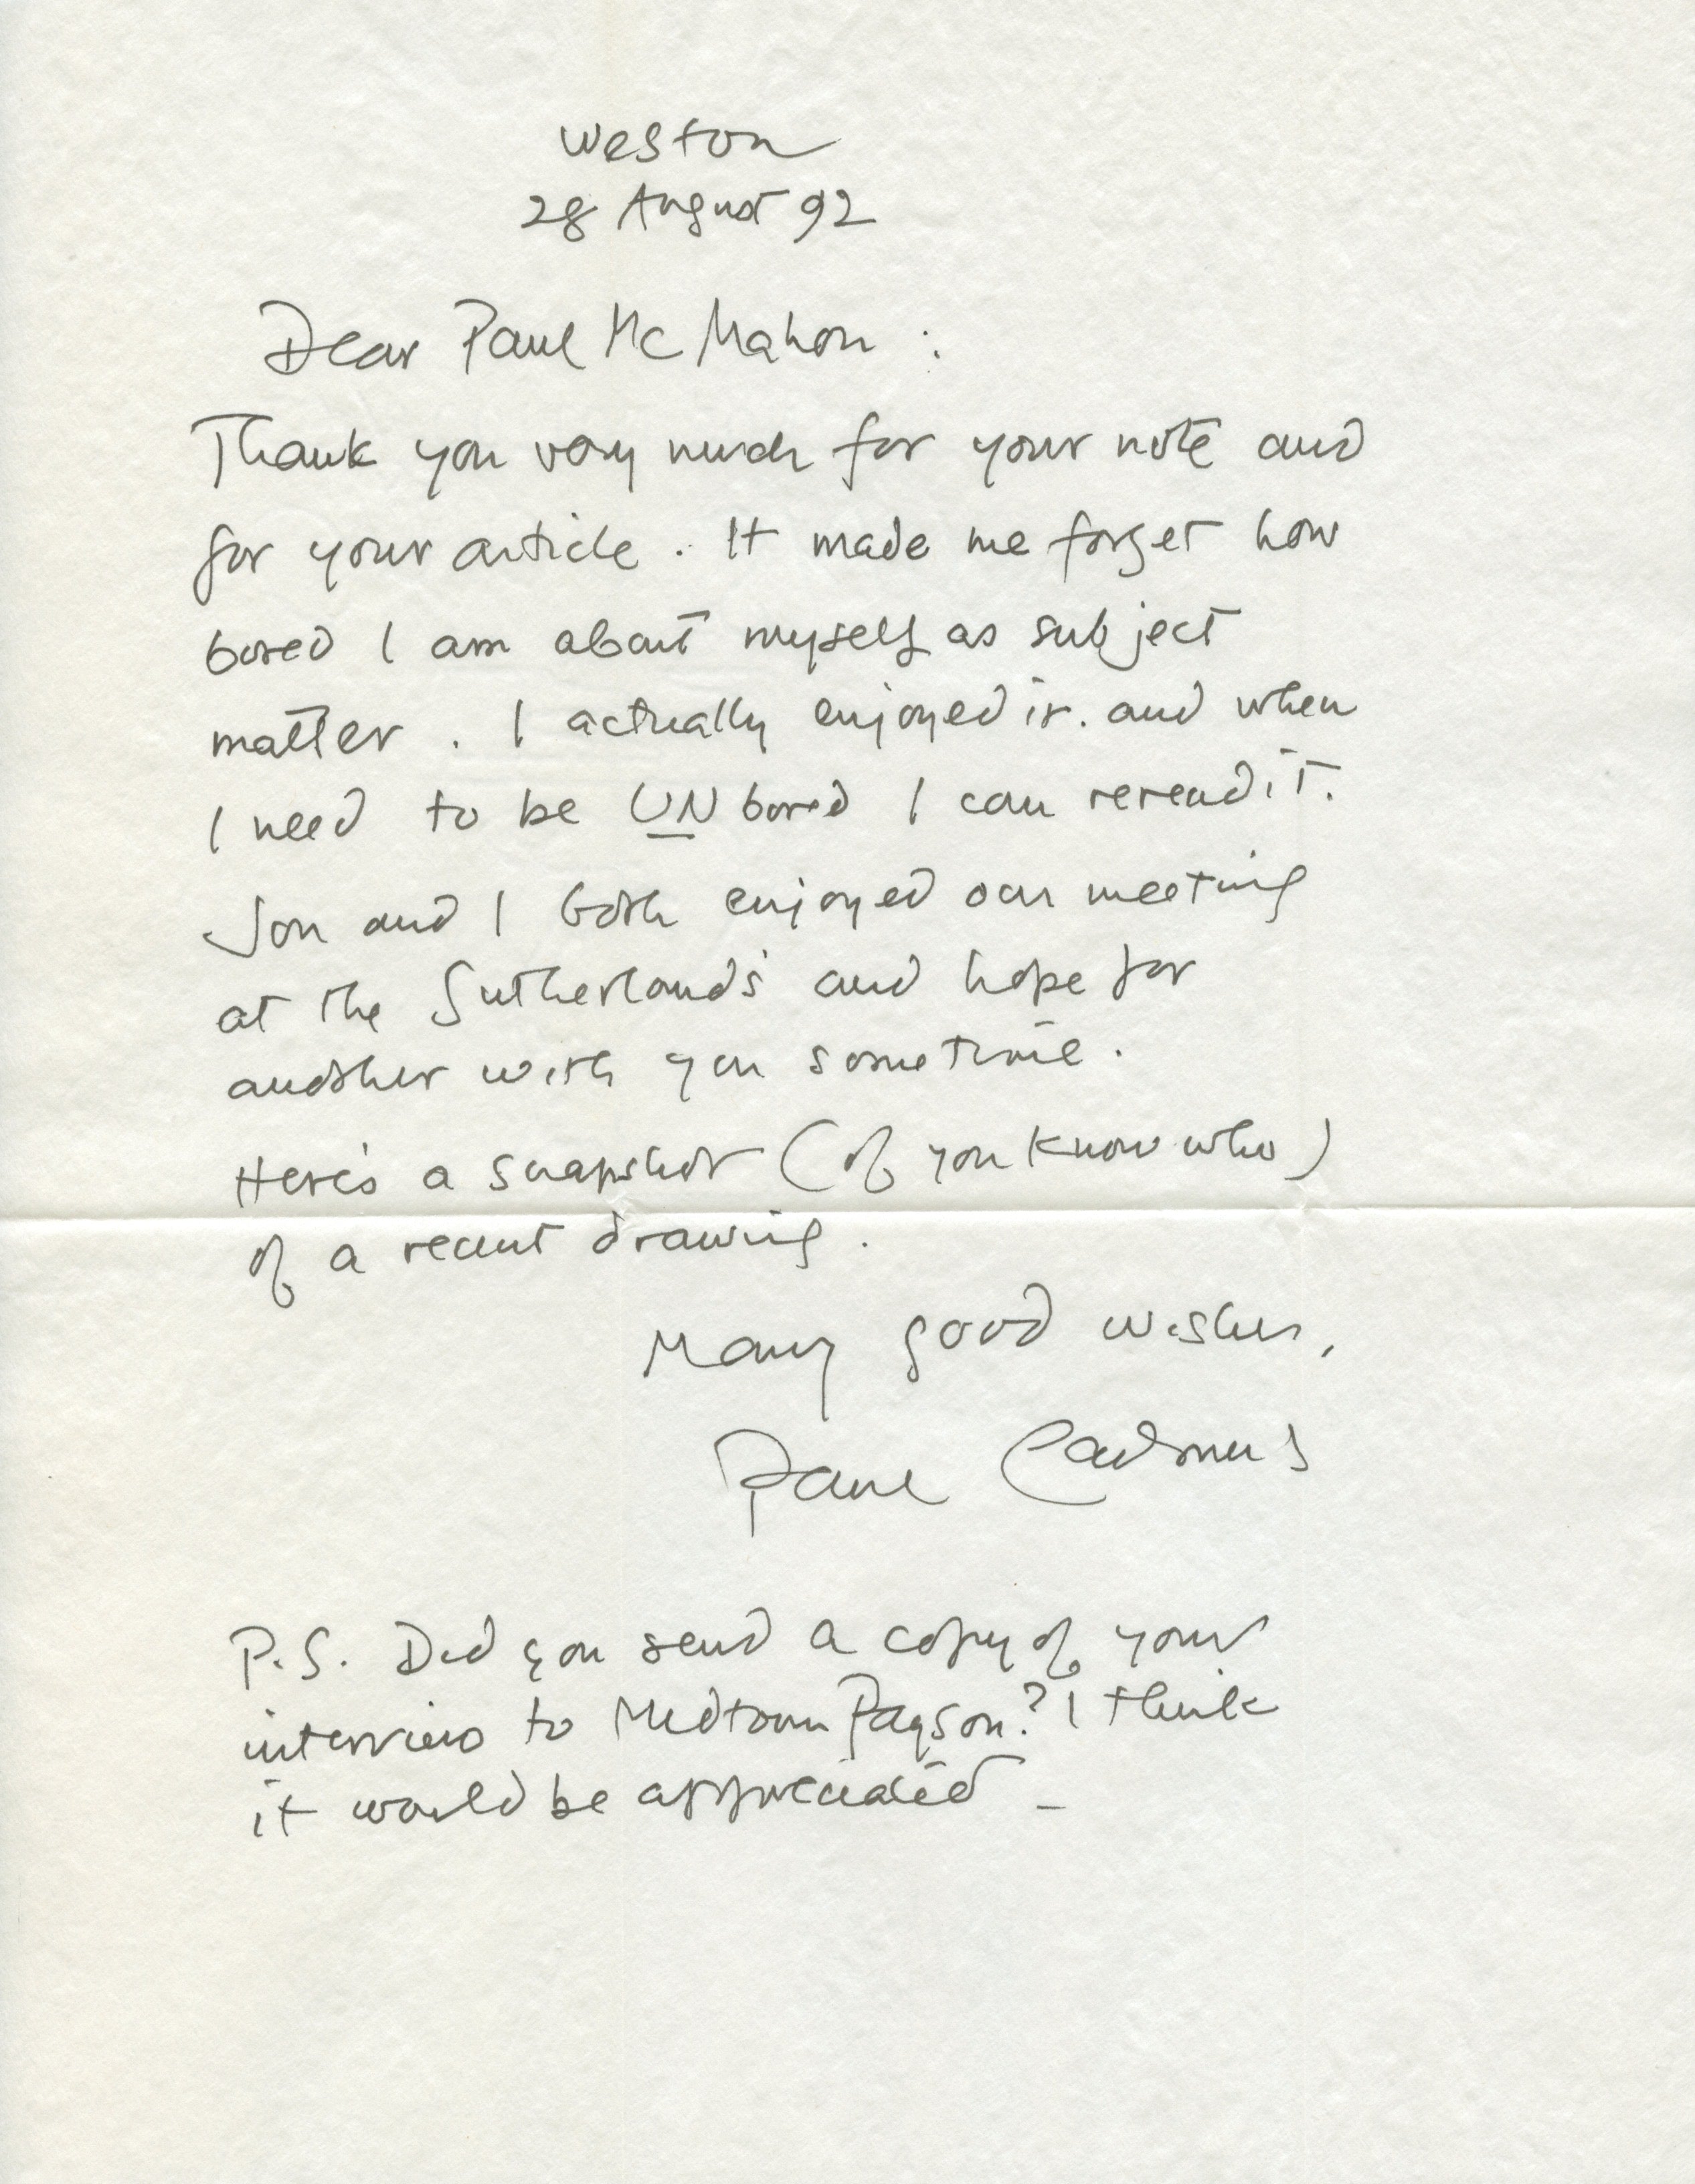 Weston
28 August 92
Dear Paul McMahon :
Thank you very much for your note and
for your article. It made me forget how
bored I am about myself as subject
matter. I actually enjoyed it. and when
I need to be UNbored I can reread it.
Jon and I both enjoyed our meeting
at the Sutherlands' and hope for
another with you sometime.
Here's a snapshot (of you know who)
of a recent drawing.
Many good wishes,
Paul Cadmus
P.S. Did you send a copy of your
interview to Midtown Payson? I think
it would be appreciated –